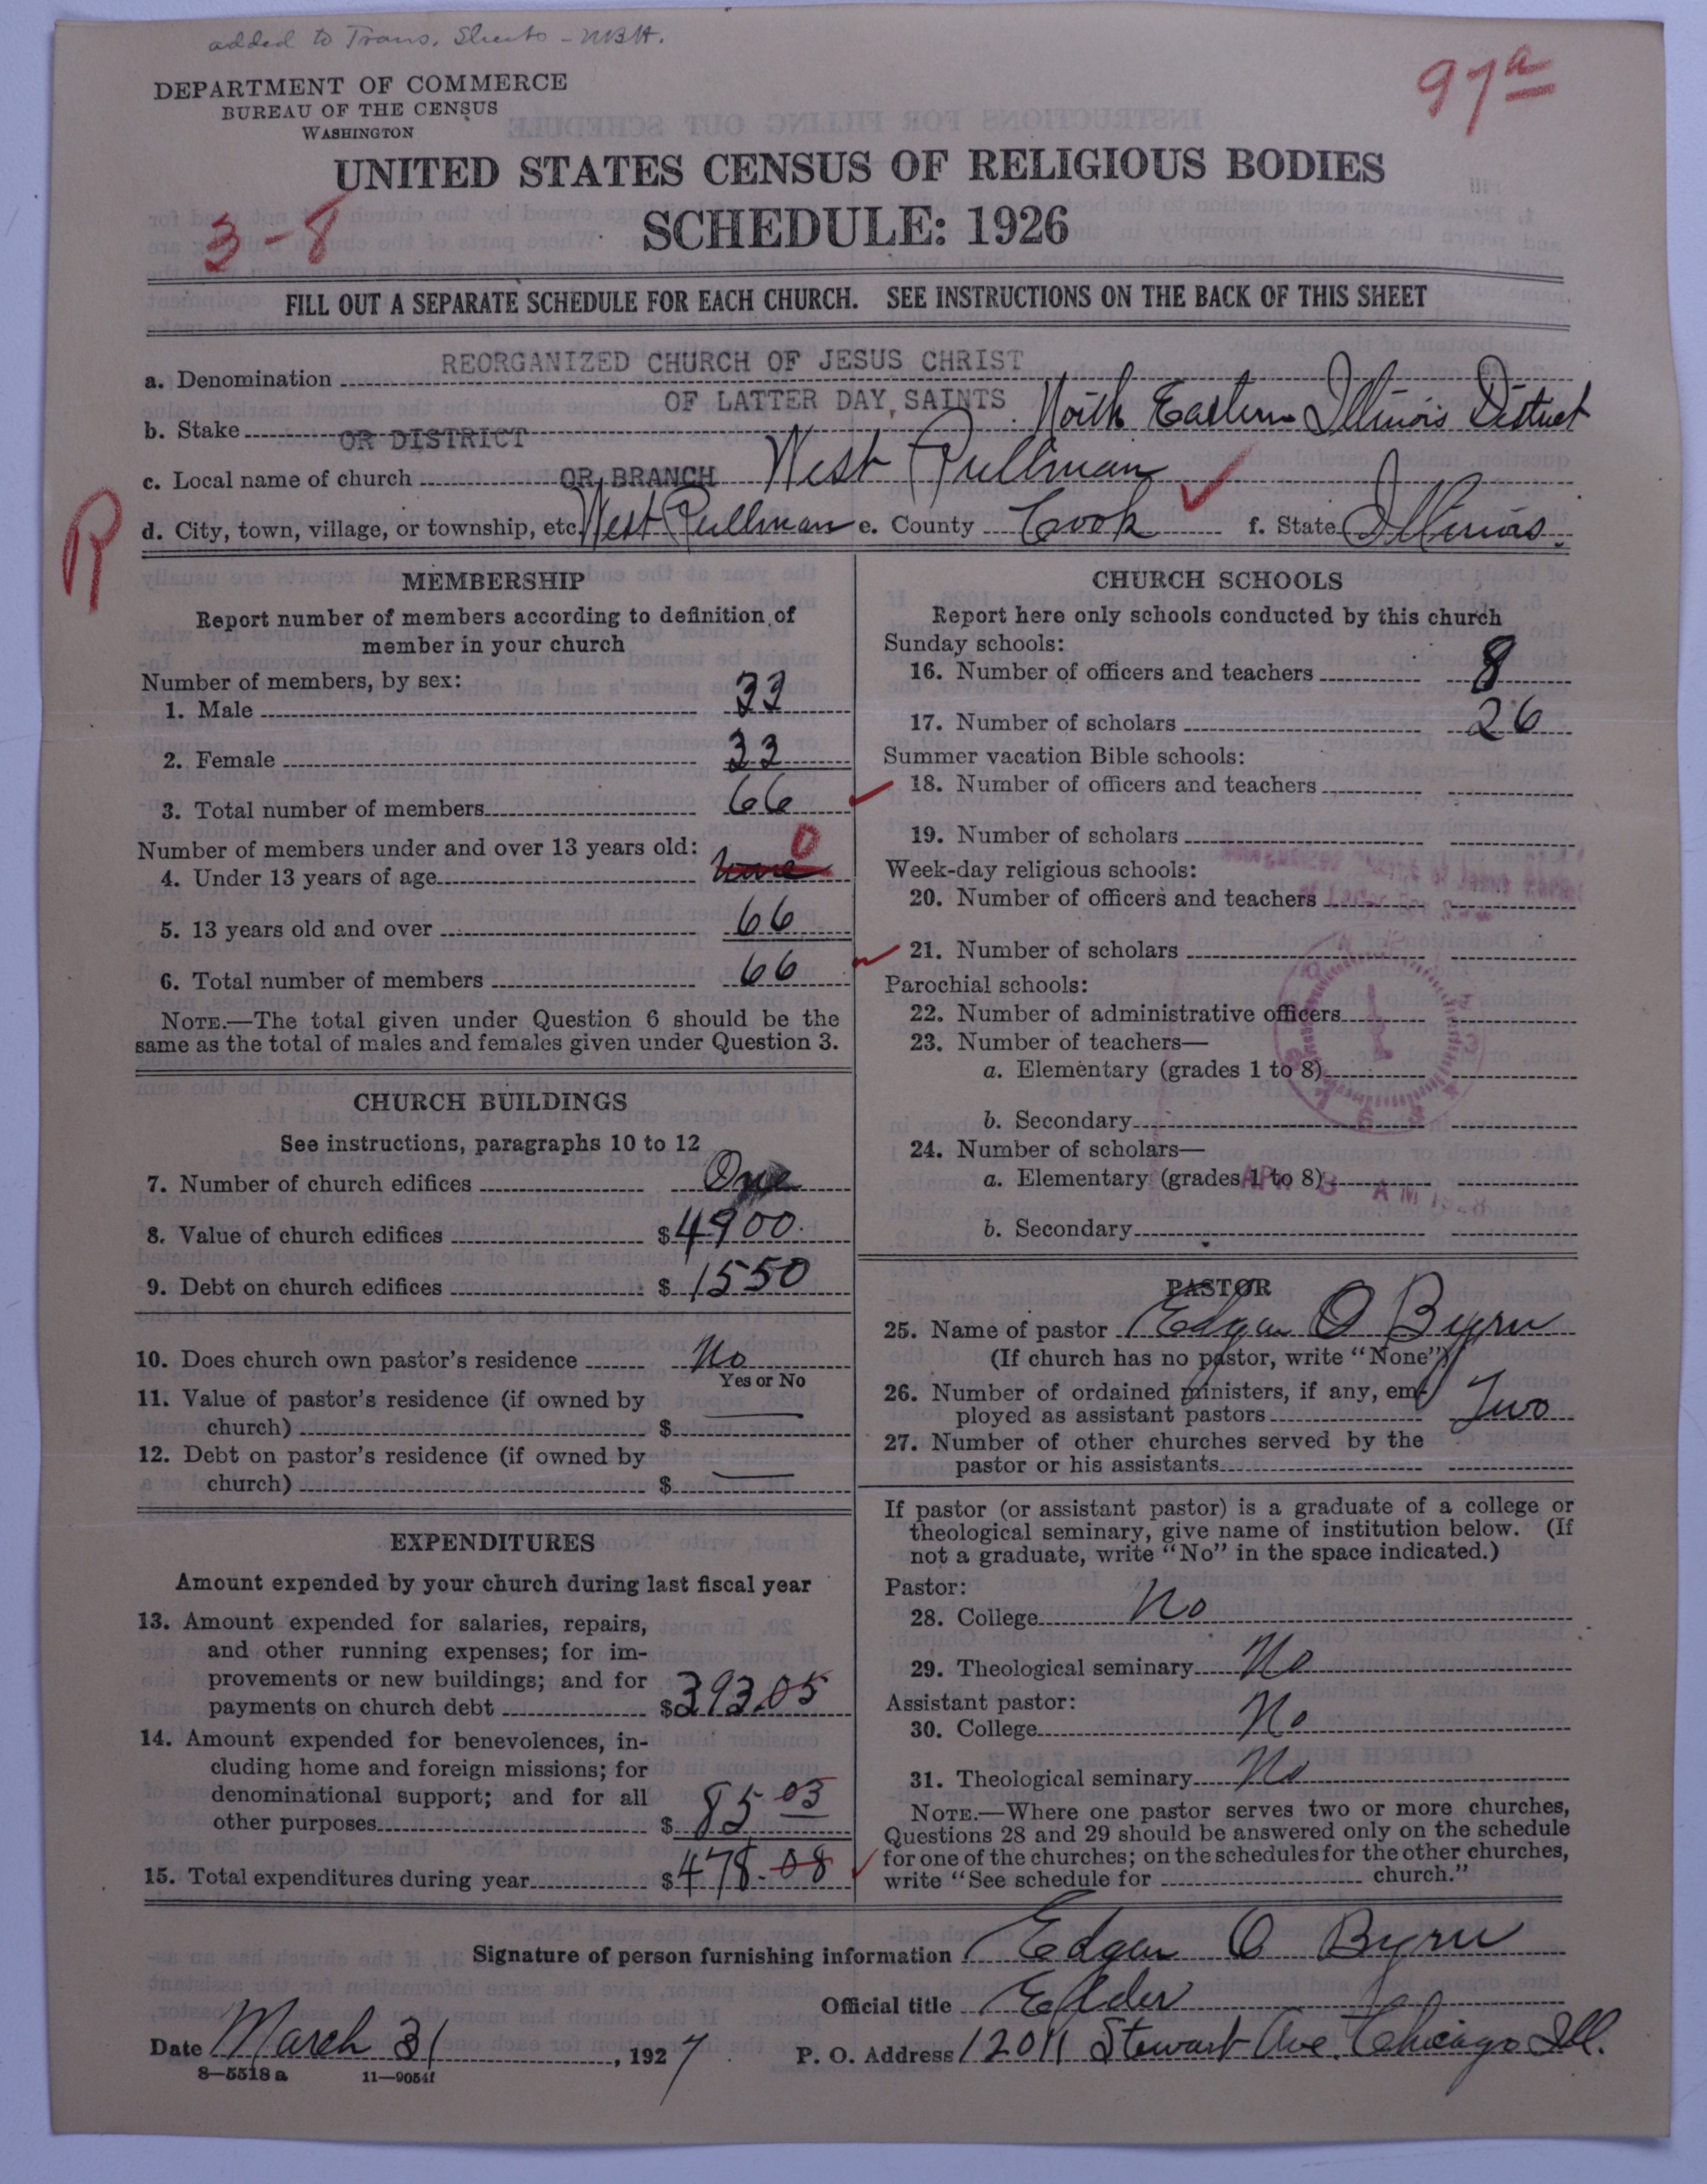 added to Trans. Sheets - MBH.
97a
DEPARTMENT OF COMMERCE
BUREAU OF THE CENSUS
WASHINGTON
UNITED STATES CENSUS OF RELIGIOUS BODIES
3-8
SCHEDULE: 1926
FILL OUT A SEPARATE SCHEDULE FOR EACH CHURCH. SEE INSTRUCTIONS ON THE BACK OF THIS SHEET
a. Denomination REORGANIZED CHURCH OF JESUS CHRIST
OF LATTER DAY SAINTS
b. Stake OR DISTRICT North Eastern Illinois District
c. Local name of church OR BRANCH West Pullman
R
d. City, town, village, or township, etc. West Pullman e. County Cook f. State Illinois.
MEMBERSHIP
Report number of members according to definition of
member in your church
Number of members, by sex:
1. Male 33
2. Female 33
3. Total number of members 66
Number of members under and over 13 years old: 0
4. Under 13 years of age None
5. 13 years old and over 66
6. Total number of members 66
NOTE.—The total given under Question 6 should be the
same as the total of males and females given under Question 3.
CHURCH BUILDINGS
See instructions, paragraphs 10 to 12
7. Number of church edifices One
8. Value of church edifices $4900.
9. Debt on church edifices $1550
10. Does church own pastor's residence No
Yes or No
11. Value of pastor's residence (if owned by
church) $
12. Debt on pastor's residence (if owned by
church) $
EXPENDITURES
Amount expended by your church during last fiscal year
13. Amount expended for salaries, repairs,
and other running expenses; for im-
provements or new buildings; and for
payments on church debt $393.05
14. Amount expended for benevolences, in-
cluding home and foreign missions; for
denominational support; and for all
other purposes $85 03
15. Total expenditures during year $478.08
CHURCH SCHOOLS
Report here only schools conducted by this church
Sunday schools:
16. Number of officers and teachers 8
17. Number of scholars 26
Summer vacation Bible schools:
18. Number of officers and teachers
19. Number of scholars
Week-day religious schools:
20. Number of officers and teachers
21. Number of scholars
Parochial schools:
22. Number of administrative officers
23. Number of teachers—
a. Elementary (grades 1 to 8)
b. Secondary
24. Number of scholars—
a. Elementary (grades 1 to 8)
b. Secondary
PASTOR
25. Name of pastor Edgar O Byrn
(If church has no pastor, write "None")
26. Number of ordained ministers, if any, em-
ployed as assistant pastors Two
27. Number of other churches served by the
pastor or his assistants
If pastor (or assistant pastor) is a graduate of a college or
theological seminary, give name of institution below. (If
not a graduate, write "No" in the space indicated.)
Pastor:
28. College No
29. Theological seminary No
Assistant pastor:
30. College No
31. Theological seminary No
NOTE.—Where one pastor serves two or more churches,
Questions 28 and 29 should be answered only on the schedule
for one of the churches; on the schedules for the other churches,
write "See schedule for church."
Signature of person furnishing information Edgar O Byrn
Official title Elder
Date March 31, 1927 P. O. Address 12011 Stewart Ave. Chicago Ill.
8-5518a 11-9054f